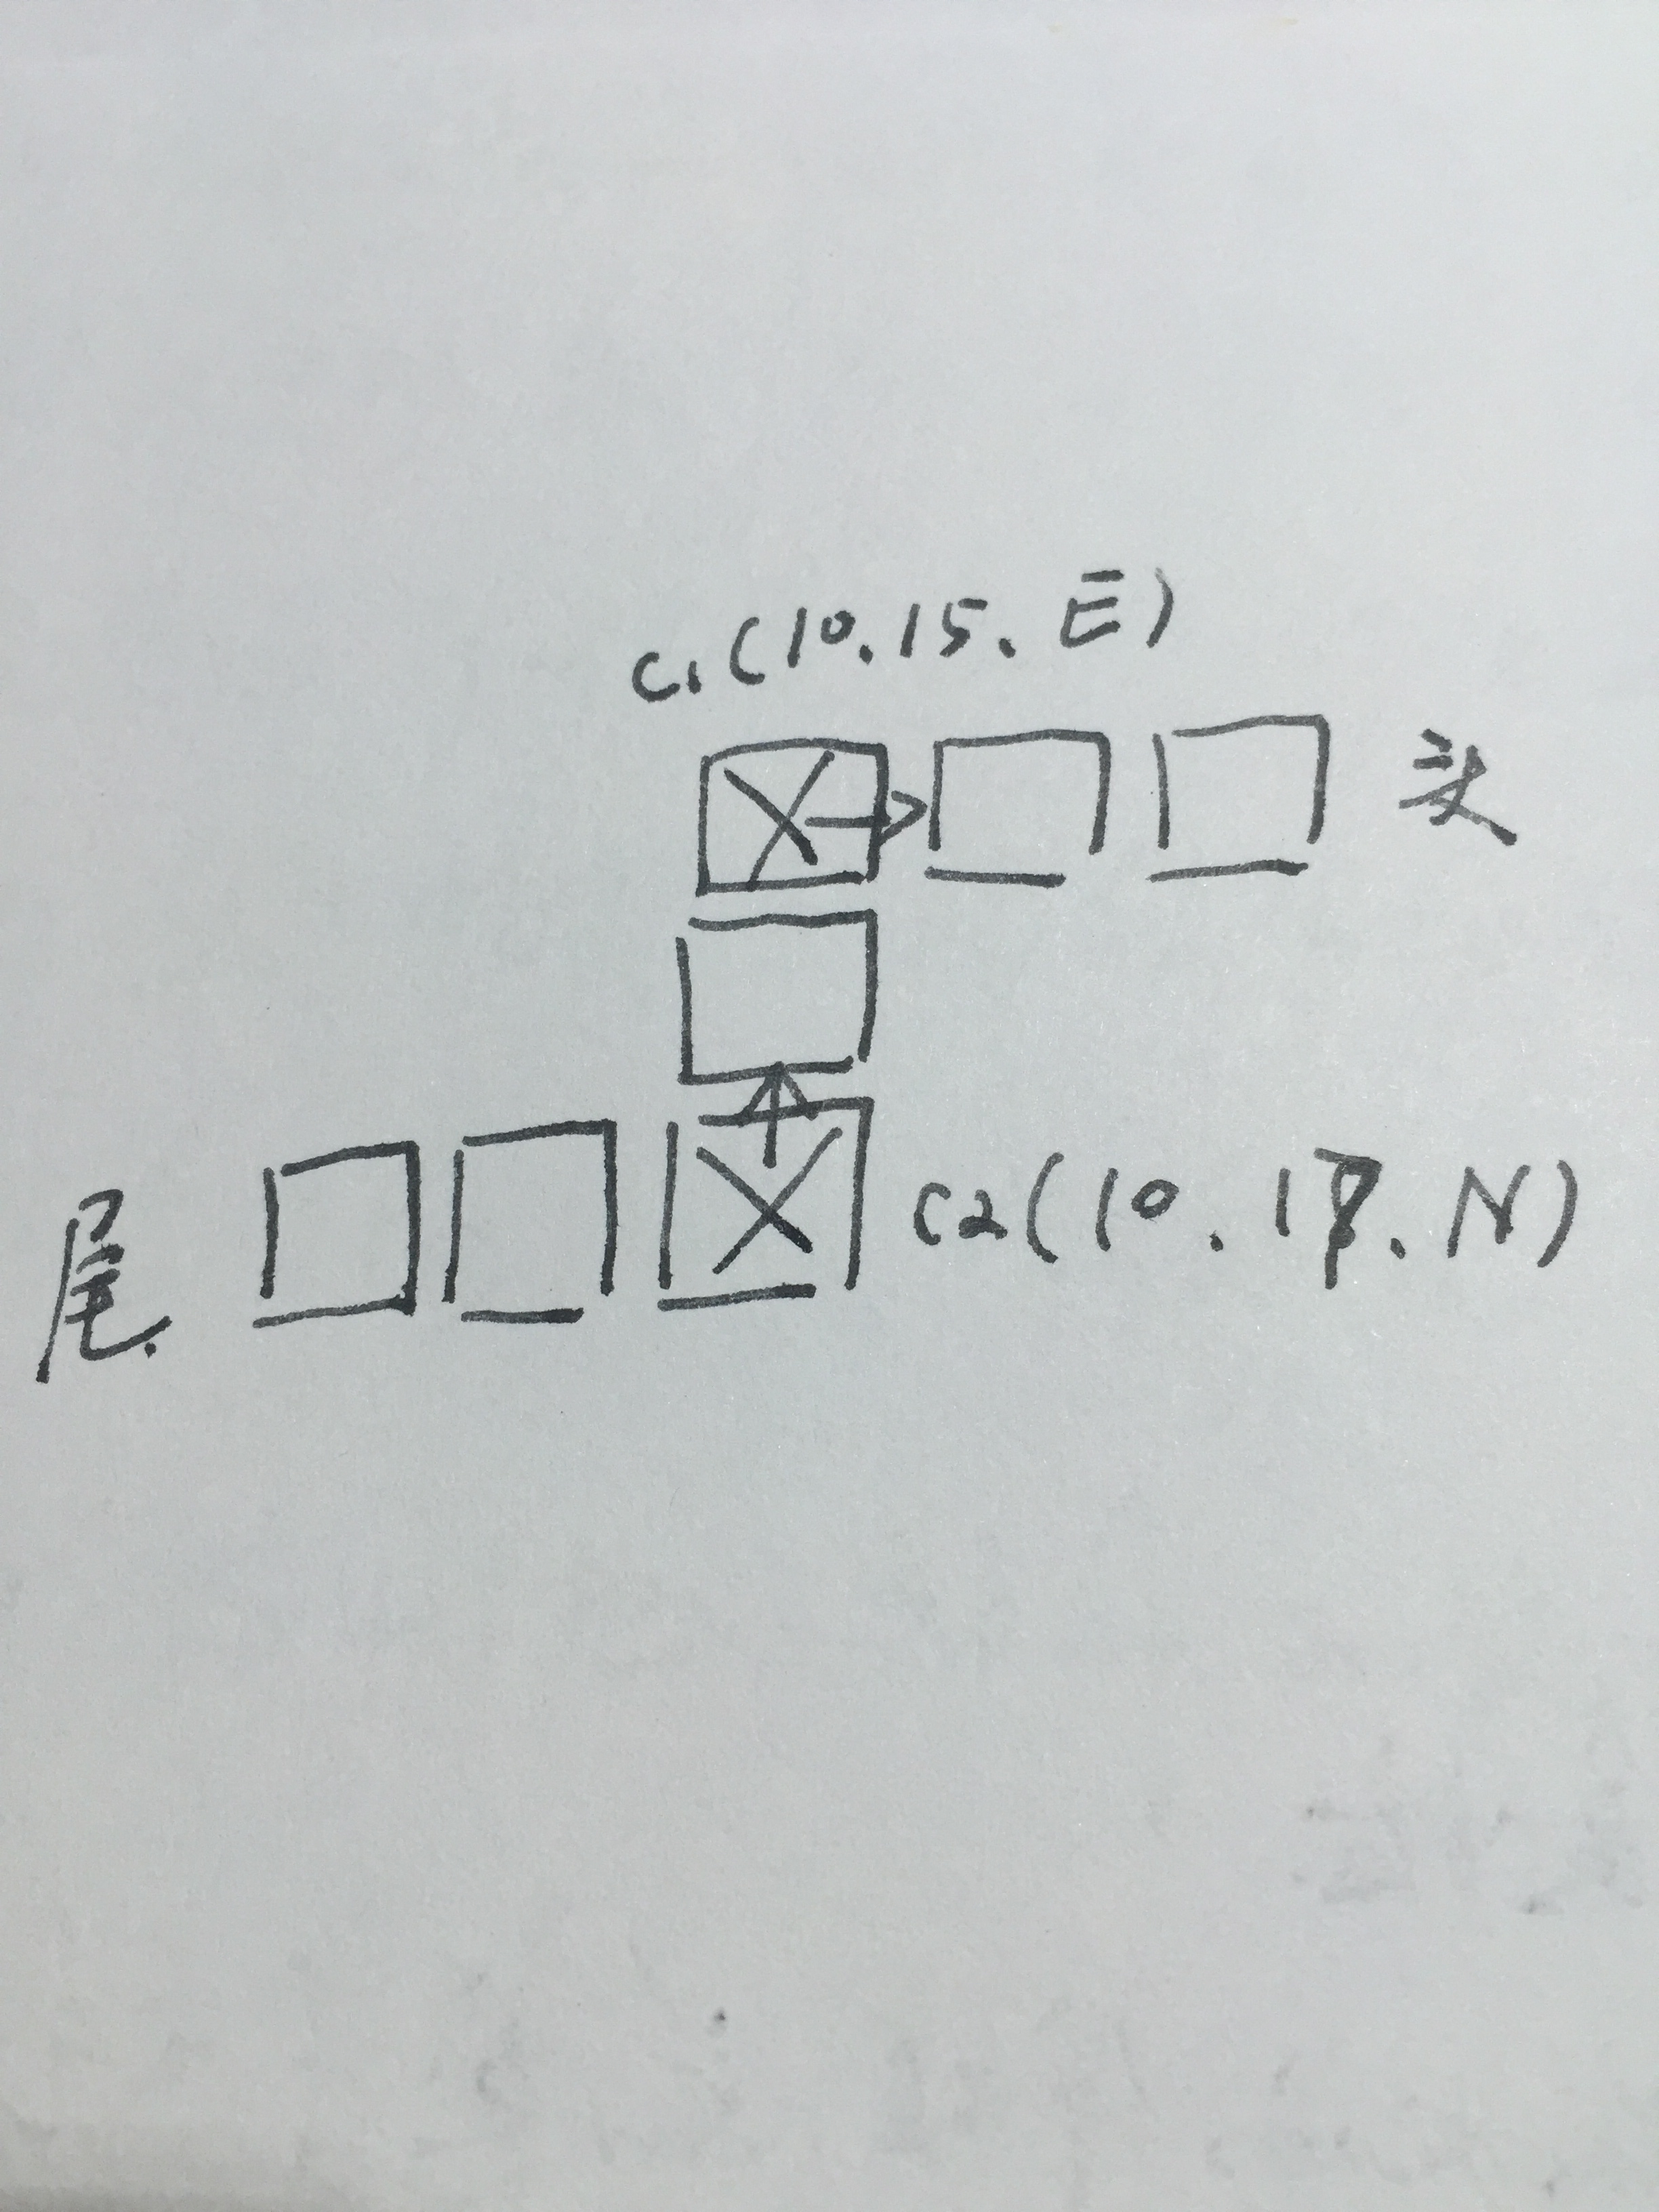 C1(10.15.E)
头
尾 C2(10.17.N)